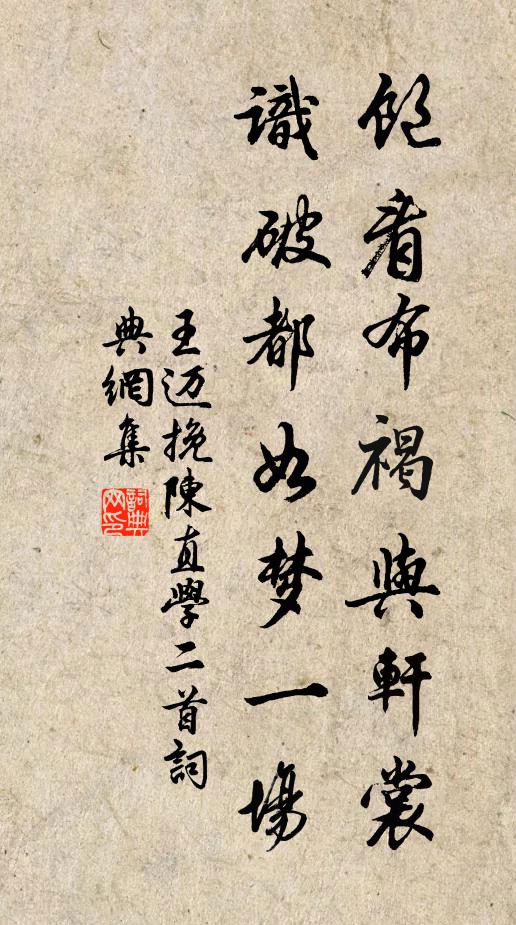 飽看布褐與軒裳
識破都如夢一場
王迈挽陳直學二首詞
典網集
詞典网印